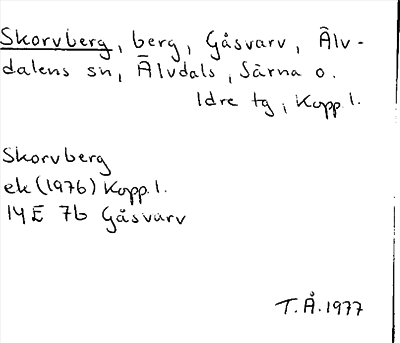 Skorvberg, berg, Gåsvarv, Älv-
dalens sn, Älvdals, Särna o.
Idre tg, Kopp. l.
Skorvberg
ek (1976) Kopp. l.
14E 7b Gåsvarv
T.Å. 1977